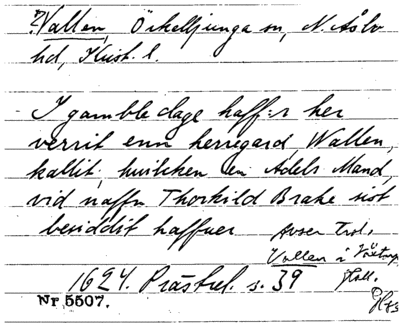 ? Vallen, Örkelljunga sn, N. Åsbo
hd, Krist. l.
I gamble dage haffr her
verrit enn herregard, Wallen,
kallit, huilcken en Adels Mand,
vid naffn Thorkild Brahe sist
besiddit haffuer
Avser trol.
Vallen i Växtorp
Hall.
1624. Prästrel. s. 39
Nr. 5507.